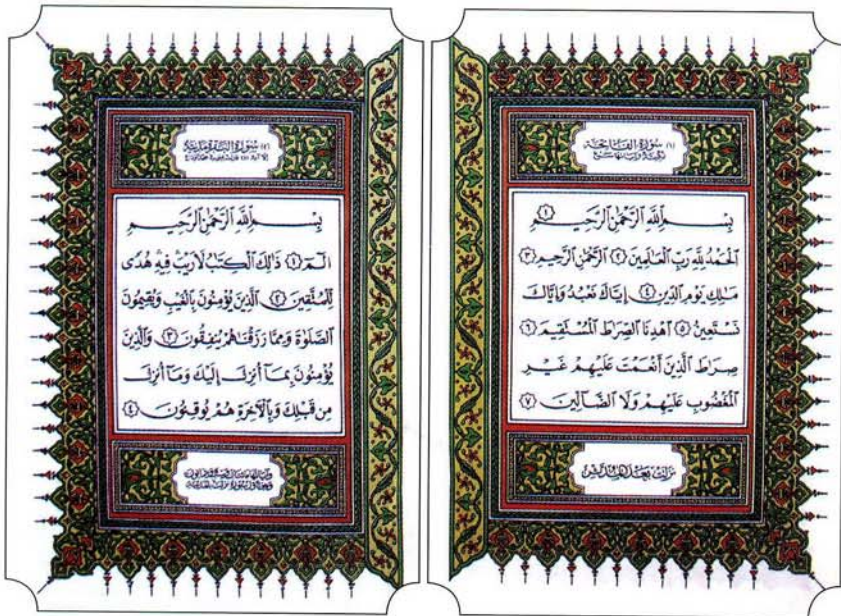 (١) سُورَةُ الفَاتِحَةِ
مَكِّيَّة وَآيَاتُهَا سَبْع
بِسْمِ ٱللَّهِ ٱلرَّحْمَٰنِ ٱلرَّحِيمِ ﴿١﴾
ٱلْحَمْدُ لِلَّهِ رَبِّ ٱلْعَٰلَمِينَ ﴿٢﴾ ٱلرَّحْمَٰنِ ٱلرَّحِيمِ ﴿٣﴾
مَٰلِكِ يَوْمِ ٱلدِّينِ ﴿٤﴾ إِيَّاكَ نَعْبُدُ وَإِيَّاكَ
نَسْتَعِينُ ﴿٥﴾ ٱهْدِنَا ٱلصِّرَٰطَ ٱلْمُسْتَقِيمَ ﴿٦﴾
صِرَٰطَ ٱلَّذِينَ أَنْعَمْتَ عَلَيْهِمْ غَيْرِ
ٱلْمَغْضُوبِ عَلَيْهِمْ وَلَا ٱلضَّآلِّينَ ﴿٧﴾
نزلت بعد المدثر
(٢) سُورَةُ البَقَرَةِ مَدَنِيَّة
بِسْمِ ٱللَّهِ ٱلرَّحْمَٰنِ ٱلرَّحِيمِ
الٓمٓ ﴿١﴾ ذَٰلِكَ ٱلْكِتَٰبُ لَا رَيْبَ فِيهِ هُدًى
لِّلْمُتَّقِينَ ﴿٢﴾ ٱلَّذِينَ يُؤْمِنُونَ بِٱلْغَيْبِ وَيُقِيمُونَ
ٱلصَّلَوٰةَ وَمِمَّا رَزَقْنَٰهُمْ يُنفِقُونَ ﴿٣﴾ وَٱلَّذِينَ
يُؤْمِنُونَ بِمَآ أُنزِلَ إِلَيْكَ وَمَآ أُنزِلَ
مِن قَبْلِكَ وَبِٱلْءَاخِرَةِ هُمْ يُوقِنُونَ ﴿٤﴾